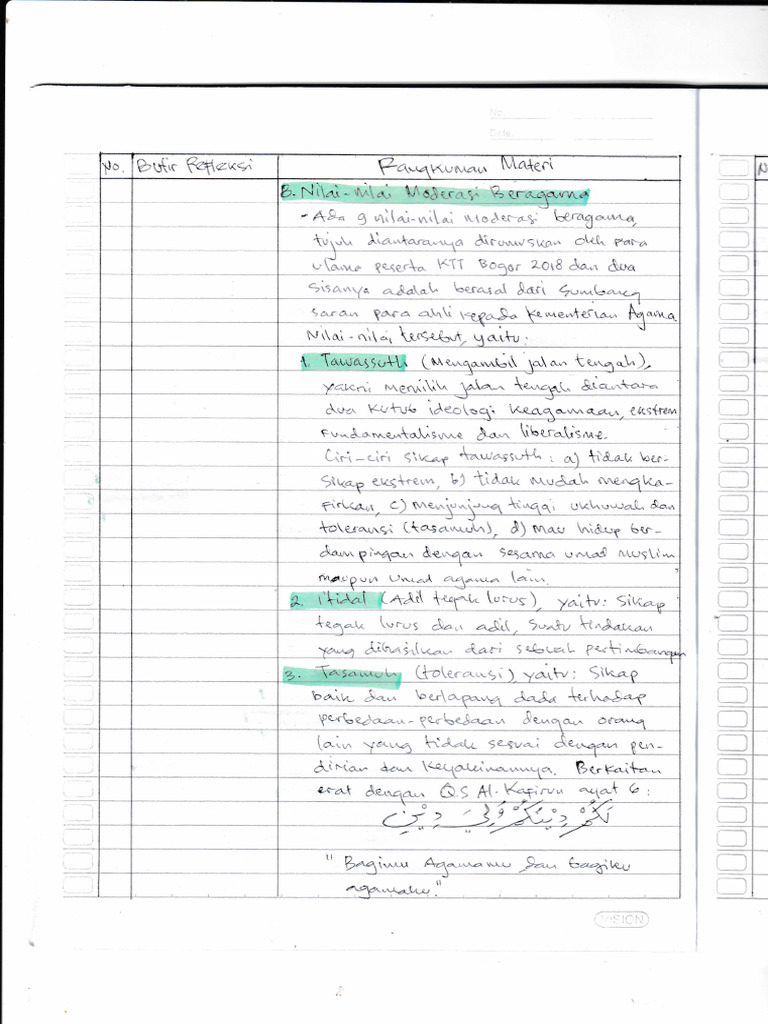 No.
Date.
No. Butir Refleksi Rangkuman Materi
B. Nilai-nilai Moderasi Beragama
- Ada 9 nilai-nilai moderasi beragama,
tujuh diantaranya dirumuskan oleh para
ulama peserta KTT Bogor 2018 dan dua
sisanya adalah berasal dari sumbang
saran para ahli kepada kementerian Agama.
Nilai-nilai tersebut, yaitu:
1. Tawassuth (Mengambil jalan tengah),
yakni memilih jalan tengah diantara
dua kutub ideologi keagamaan, ekstrem
fundamentalisme dan liberalisme.
Ciri-ciri sikap tawassuth: a) tidak ber-
sikap ekstrem, b) tidak mudah mengka-
firkan, c) menjunjung tinggi ukhuwah dan
toleransi (tasamuh), d) mau hidup ber-
dampingan dengan sesama umat muslim
maupun umat agama lain.
2. I'tidal (Adil tegak lurus), yaitu: Sikap
tegak lurus dan adil, suatu tindakan
yang dihasilkan dari sebuah pertimbangan
3. Tasamuh (toleransi) yaitu: Sikap
baik dan berlapang dada terhadap
perbedaan-perbedaan dengan orang
lain yang tidak sesuai dengan pen-
dirian dan keyakinannya. Berkaitan
erat dengan Q.S Al-Kafirun ayat 6:
لَكُمْ دِيْنُكُمْ وَلِيَ دِيْنِ
"Bagimu Agamamu dan bagiku
agamaku."
VISION